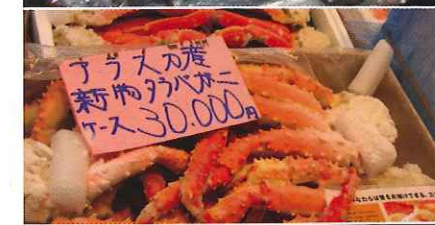 アラスカ産
新物タラバガニ
ケース30.000円